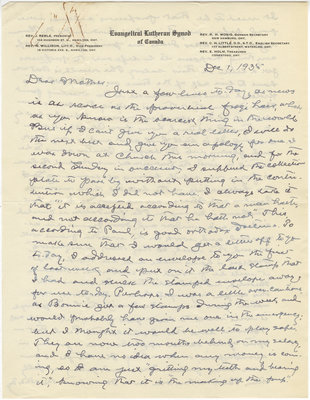 Evangelical Lutheran Synod
of Canada
REV. J. REBLE, PRESIDENT
HAMILTON, ONT.
REV. G. WILLISON, LITT. D., VICE PRESIDENT
HAMILTON, ONT.
SECRETARY
NEW HAMBURG, ONT.
ENGLISH SECRETARY
WATERLOO, ONT.
REV. E. HOLM, TREASURER
ONT.
Dec 1, 1935
Dear Mother:
Just a few lines to day, as news
is as scarce as the proverbial frog's hair, which
as you know is the scarcest thing in the world.
But if I can't give you a real letter, I will do
the next best and give you an apology for one. I
was down at Church this morning, and for the
second Sunday in succession I suffered the collection
plate to pass by without putting in the contri-
bution which I did not have. I always hate it
that "it is accepted according to that a man hath,
and not according to that he hath not." This
according to Paul, is good orthodox doctrine. So
make sure that I would get a letter off to you
to day, I addressed an envelope to you the first
of last week and put on it the last stamp that
I had and stuck the stamped envelope away
for use to-day. Perhaps I was a little over cautious
as Bonnie got a few stamps during the week and
would probably have given me one in the emergency,
but I thought it would be well to play safe.
They are now two months behind on my salary
and I have no idea when any money is com-
ing, so I am just "gritting my teeth and bearing
it," knowing that it is the making up the